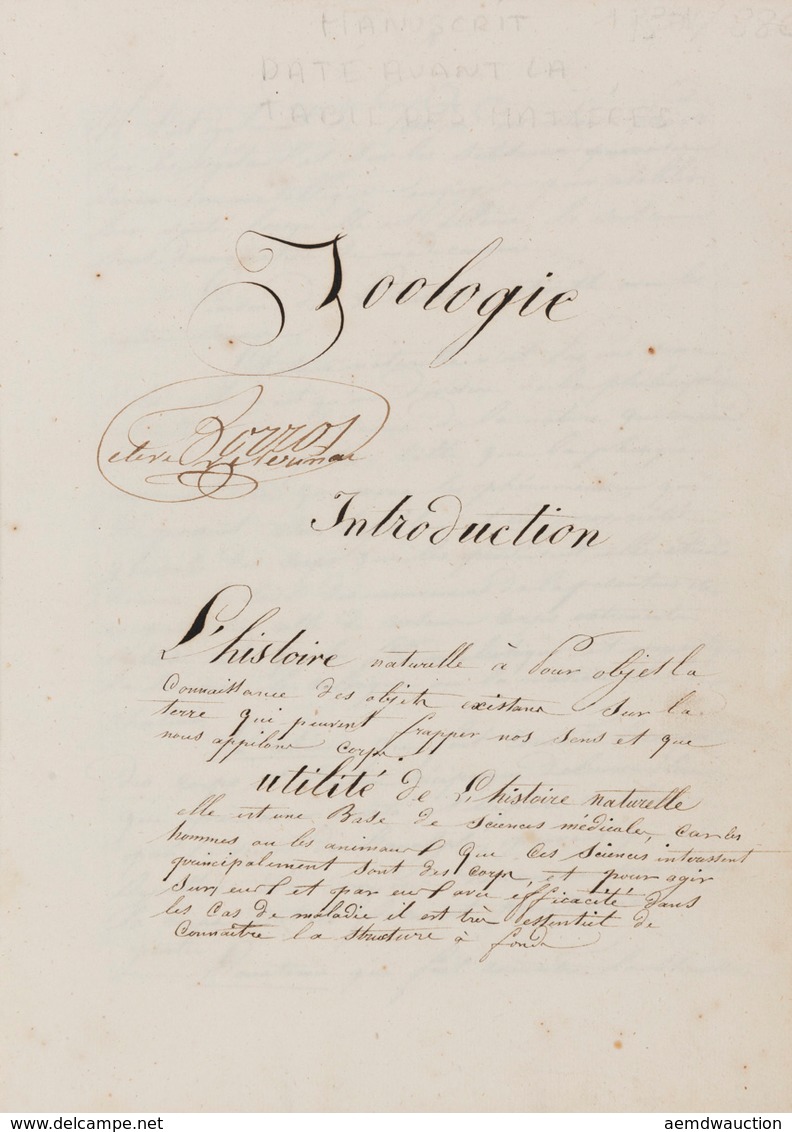 MANUSCRIT
DATE AVANT LA
TABLE DES MATIERES
Zoologie
Bozzo
eleve veterinai
Introduction
L'histoire naturelle à Pour objet la
Connaissance des objets existans sur la
terre qui peuvent frapper nos sens et que
nous appilons corps.
utilité de L'histoire naturelle
elle est une Base de sciences médicales, car les
hommes ou les animaux que ces sciences interessent
principalement sont des corps, et pour agir
sur eux et par eux avec éfficacité dans
les Cas de maladie il est très essentiel de
Connaître la structure à fond
www.delcampe.net
aemdwauction